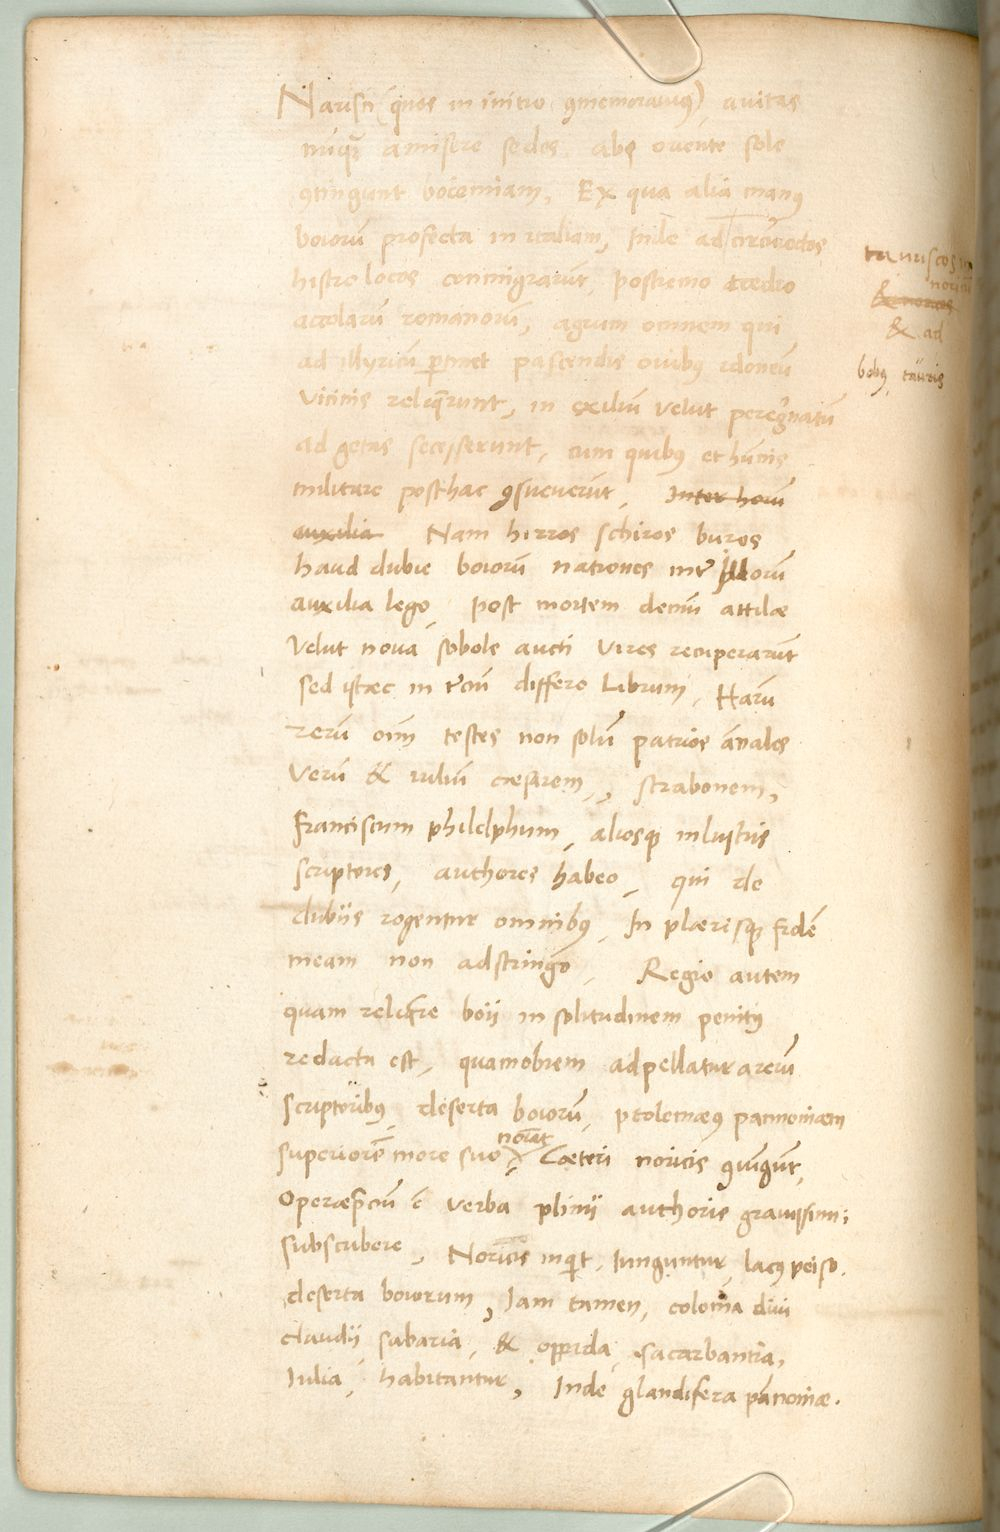 Narisci (quos in initio ꝯmemorauimꝰ) auitas
nūqꝫ amisere sedes, abs oriente sole
ꝯtingunt boiemiam, Ex qua alia manꝰ
boiorū profecta in italiam, Inde ad circūiectos
histro locos commigrarūt, postremo tædio
accolarū romanorū, agrum omnem qui
ad illyricū ꝑtinet pascendis ouibꝰ idoneū
vicinis reliq̄runt, in exiliū velut peregrinatū
ad getas secesserunt, cum quibꝰ et hūnis
militare posthac ꝯsueuerūt, Inter horū
auxilia Nam hirros schiros buros
haud dubie boiorū nationes inter illorū
auxilia lego, Post mortem demū attilæ
Velut noua sobole aucti vires reciperarūt
sed istæc in tertiū differo Librum, Harū
rerū oīm testes non solū patrios ānales
Verū & iuliū cæsarem, strabonem,
franciscum philelphum, aliosqꝫ inlustris
scriptores, authores habeo, qui de
dubiis rogentur omnibꝰ, In plærisqꝫ fidē
meam non adstringo, Regio autem
quam reliq̄re boii in solitudinem penitꝰ
redacta est, quamobrem adpellatur a rerū
scriptoribꝰ, deserta boiorū, ptolemæꝰ pannoniæ
superiorē more suo notat Cæteri noricis ꝯiūgūt,
Operæp̄ciū ē verba plinii authoris grauissimi
subscribere, Noricis inquit, iunguntur, lacꝰ peiso,
deserta boiorum, Iam tamen, colonia diui
claudii sabaria, & oppida, sacarbantia,
Iulia, habitantur, Inde glandifera pānoniæ.
tauriscos in
noricū
& ad
bobꝰ, tauris